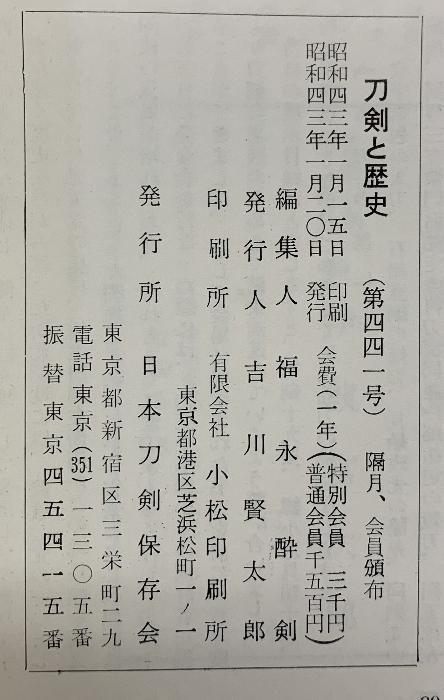 刀剣と歴史　（第四四一号）　隔月、会員頒布
昭和四三年一月一五日　印刷
昭和四三年一月二〇日　発行
会費（一年）（特別会員　三千円
普通会員千五百円）
編集人　福永酔剣
発行人　吉川賢太郎
印刷所　有限会社　小松印刷所
東京都港区芝浜松町一ノ一
発行所　日本刀剣保存会
東京都新宿区三栄町二九
電話東京（351）一三〇五番
振替東京四五四一五番